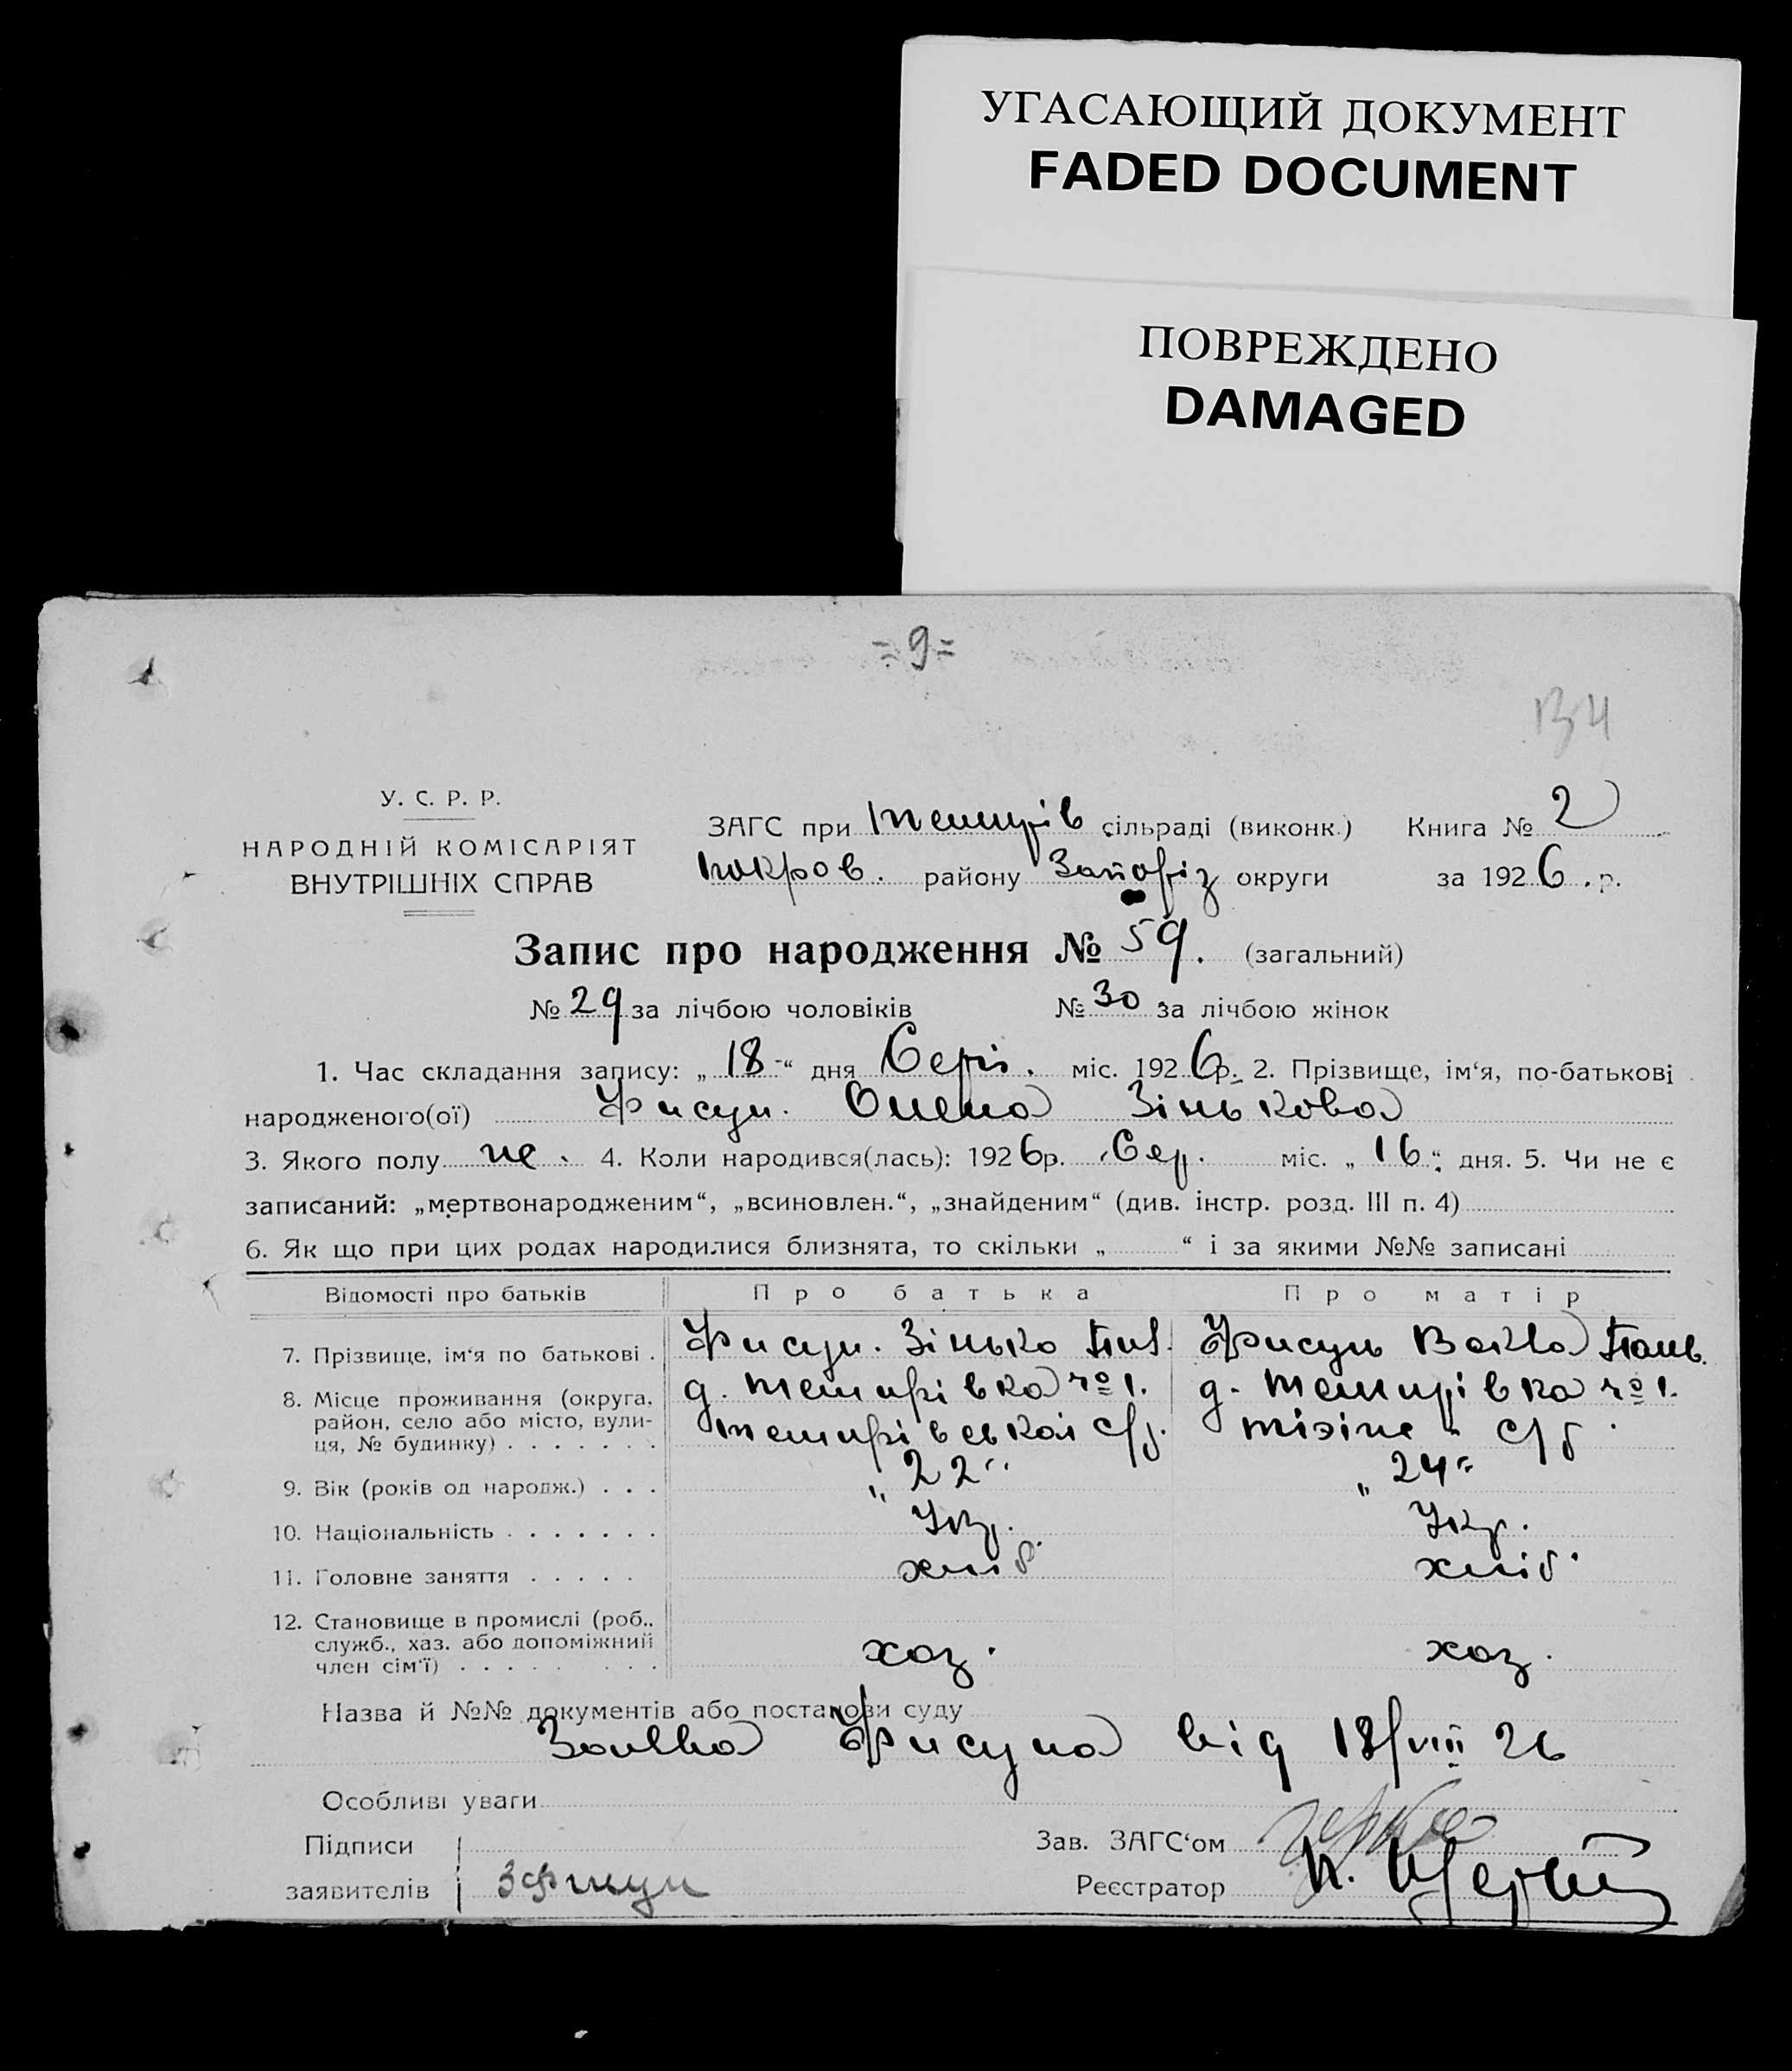 УГАСАЮЩИЙ ДОКУМЕНТ
FADED DOCUMENT
ПОВРЕЖДЕНО
DAMAGED
=9=
У. С. Р. Р.
НАРОДНІЙ КОМІСАРІЯТ
ВНУТРІШНІХ СПРАВ
ЗАГС при Темирів сільраді (виконк.) Книга № 2
Покров. району Запоріз округи за 1926.р.
Запис про народження № 59. (загальний)
№ 29 за лічбою чоловіків № 30 за лічбою жінок
1. Час складання запису: „18“ дня Серп. міс. 1926р. 2. Прізвище, ім‘я, по-батькові
народженого(ої) Фисун. Олена Зінькова
3. Якого полу же. 4. Коли народився(лась): 1926р. Сер. міс. „16“ дня. 5. Чи не є
записаний: „мертвонародженим“, „всиновлен.“, „знайденим“ (див. інстр. розд. III п. 4)
6. Як що при цих родах народилися близнята, то скільки „ “ і за якими №№ записані
Відомості про батьків Про батька Про матір
7. Прізвище, ім‘я по батькові . Фисун. Зінько Фисун
8. Місце проживання (округа, д. Темирівка №1. д. Темирівка №1.
район, село або місто, вули-
ця, № будинку) Темирівської с/р.
9. Вік (років од народж.) . . . „22“ „24“
10. Національність Укр. Укр.
11. Головне заняття хліб. хліб.
12. Становище в промислі (роб.,
служб., хаз. або допоміжний
член сім‘ї) хоз. хоз.
Назва й №№ документів або постанови суду
Заява Фисуна від 18/VIII 26
Особливі уваги
Підписи Зав. ЗАГС‘ом
заявителів З Фисун Реєстратор